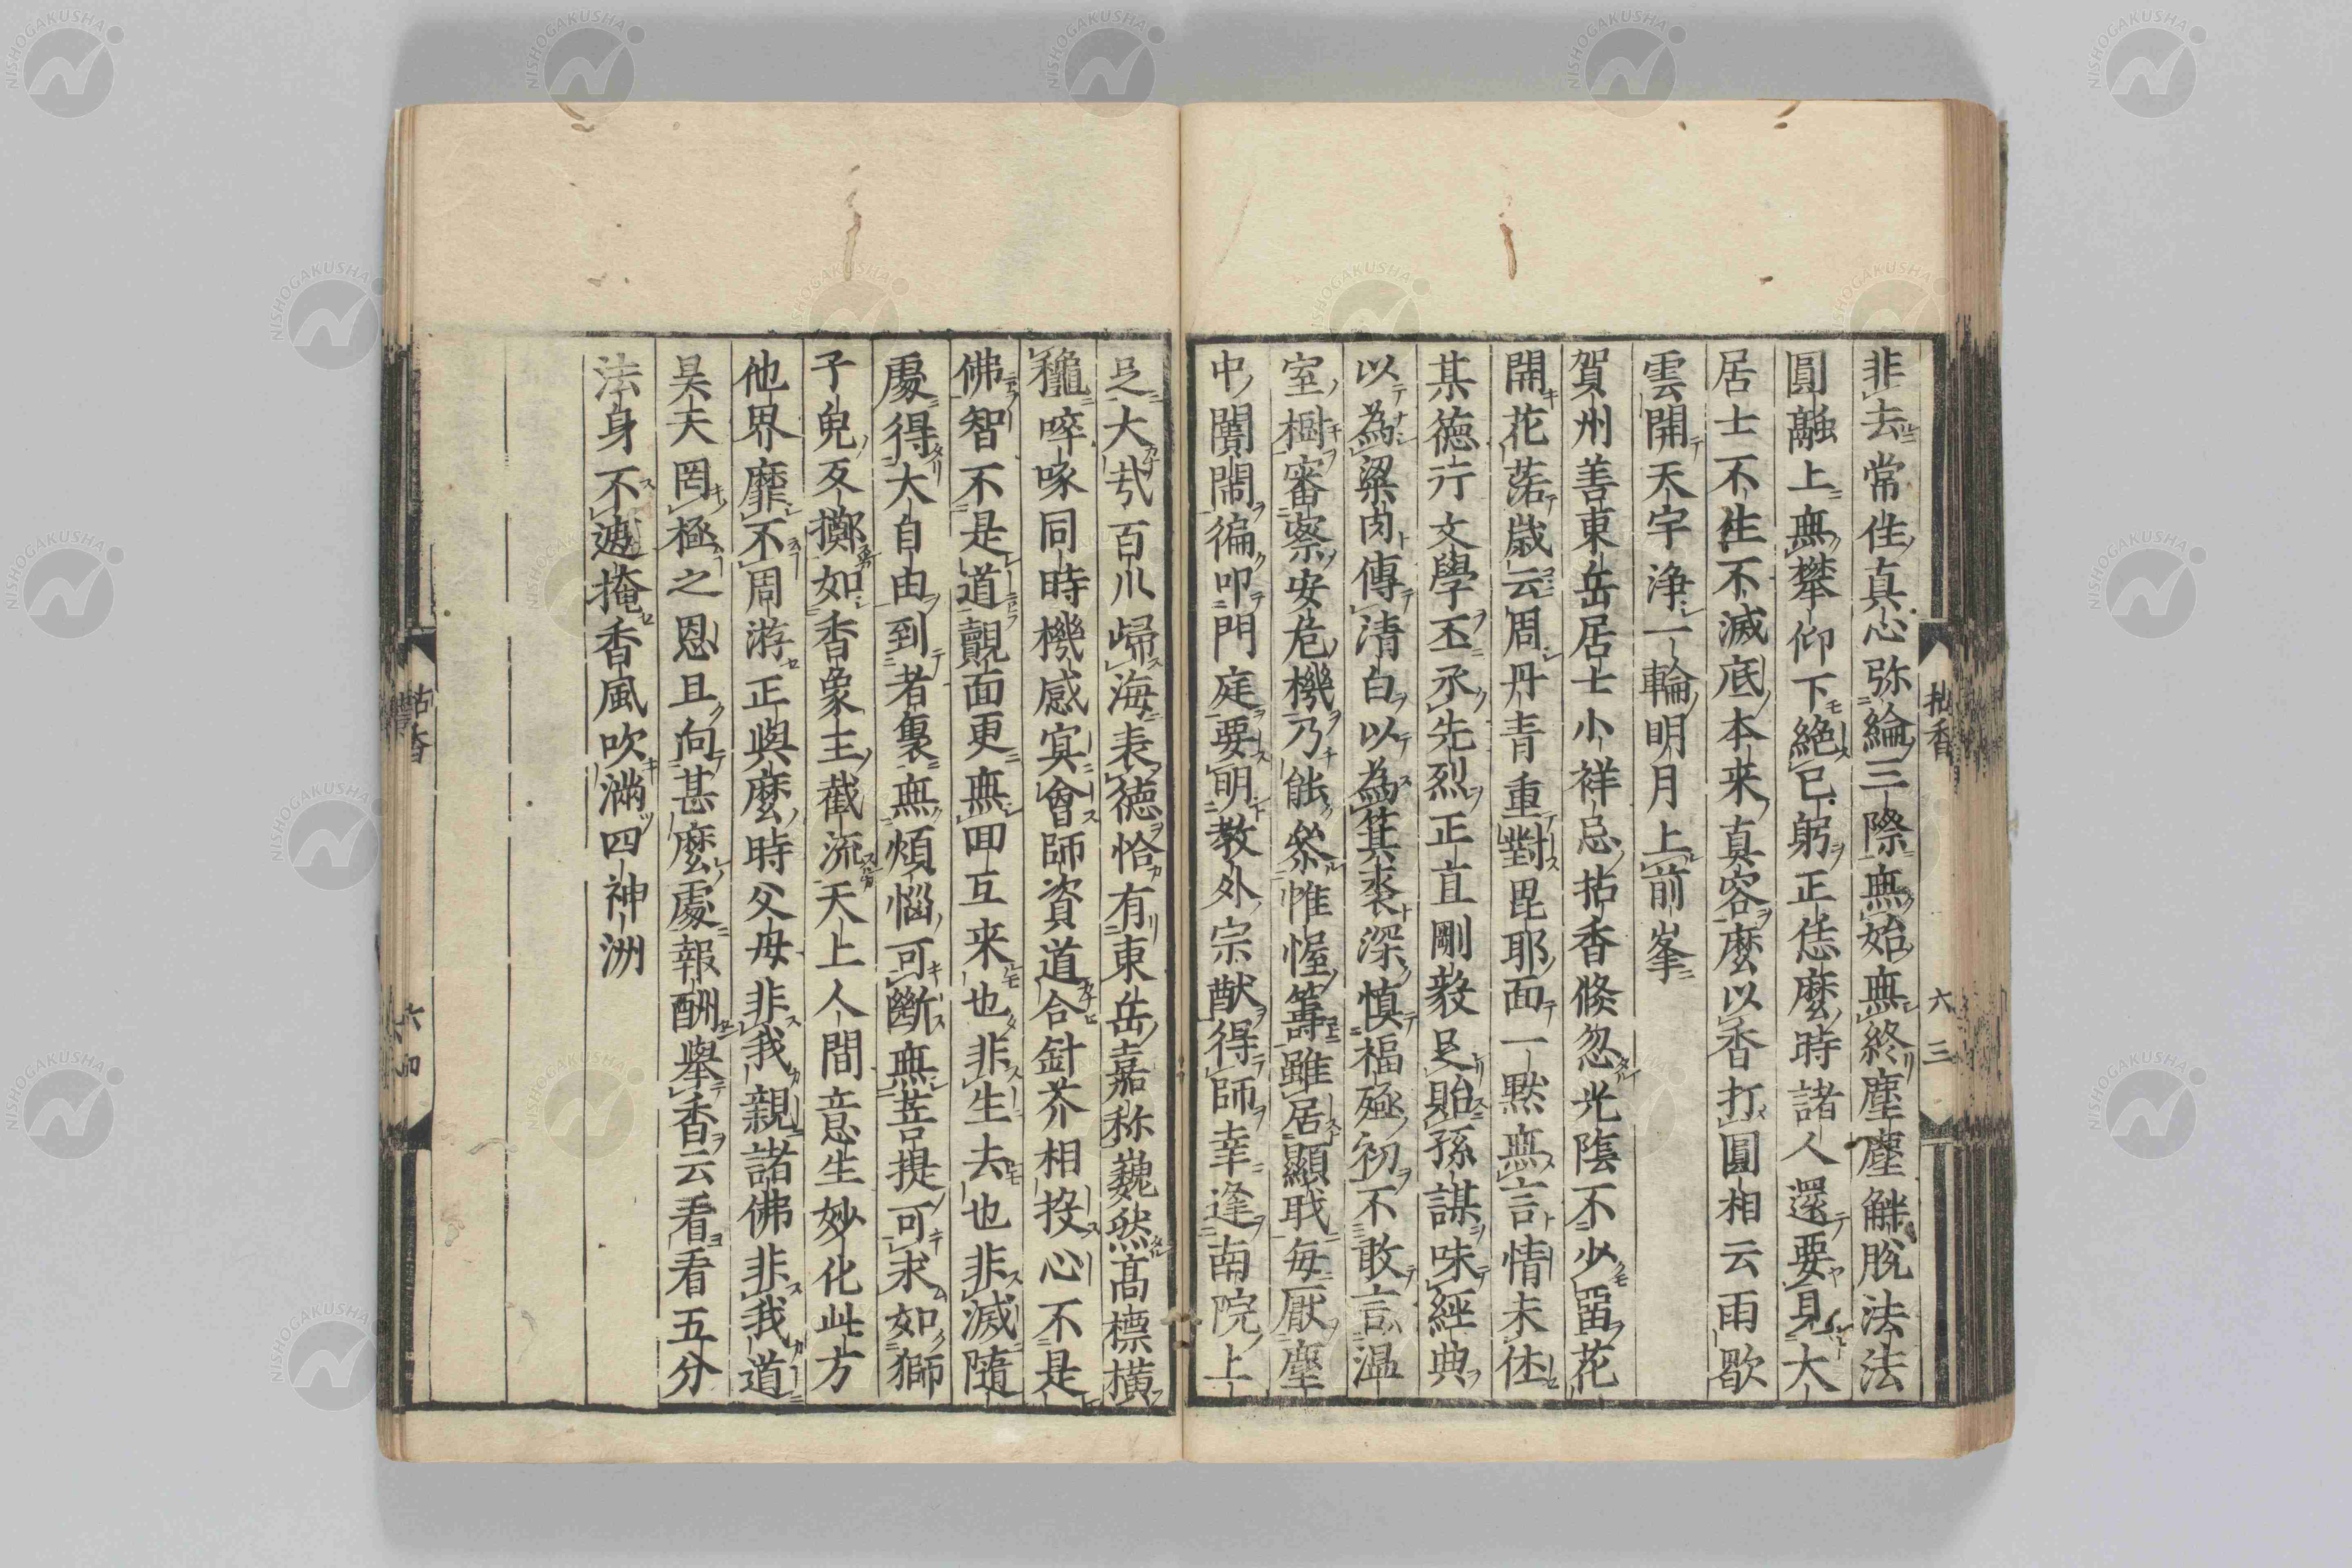 非去常住真心弥綸三際無始無終塵塵觧脱法法
圓融上無攀仰下絶已躬正恁麼時諸人還要見大
居士不生不滅底本来真容麼以香打圓相云雨歇
雲開天宇浄一輪明月上前峯
賀州善東岳居士小祥忌拈香倐忽光陰不少畄花
開花落歳云周丹青重對毘耶面一黙無言情未休
某徳行文學丕承先烈正直剛毅足貽孫謀味經典
以為粱肉傳清白以為箕裘深慎福極初不敢言温
室樹審察安危機乃能叅惟幄籌雖居顯戝毎厭塵
中閙徧叩門庭要明教外宗猷得師幸逢南院上
足大㢤百川歸海表徳恰有東岳嘉称巍然髙標横
穐啐啄同時機感㝠會師資道合針芥相投心不是
佛智不是道覿面更無回互来也非生去也非滅隨
處得大自由到者裏無煩惱可断無菩提可求如獅
子皃反擲如香象王截流天上人間意生妙化此方
他界靡不周游正與麼時父母非我親諸佛非我道
昊天罔極之恩且向甚麼處報酬舉香云看看五分
法身不遮掩香風吹満四神洲
拈香
六三
六四
NISHOGAKUSHA